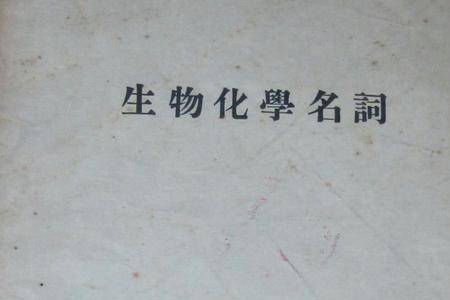 生物化學名詞